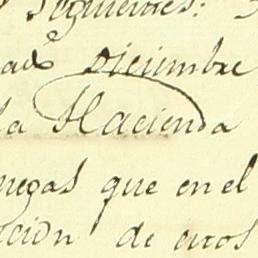 siguientes:
Diciembre
la Hacienda
negas que en el
cion de otros